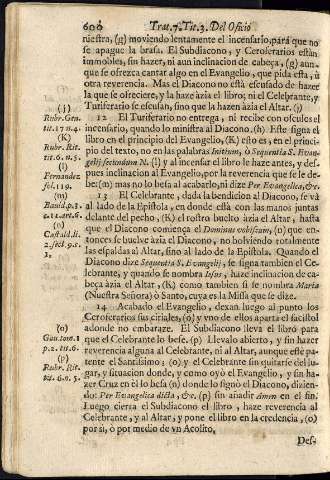 600 Trat.7. Tit.3. Del Oficio
riestra, (g) moviendo lentamente el incensario, para que no
se apague la brasa. El Subdiacono, y Ceroferarios estàn
immobles, sin hazer, ni aun inclinacion de cabeça, (g) aun-
que se ofrezca cantar algo en el Evangelio, que pida esta, ù
otra reverencia. Mas el Diacono no està escusado de hazer
la que se ofreciere, y la haze àzia el libro; ni el Celebrante, y
Turiferario se escusan, sino que la hazen àzia el Altar. (j)
12 El Turiferario no entrega, ni recibe con osculos el
incensario, quando lo ministra al Diacono. (h) Este signa el
libro en el principio del Evangelio, (K) esto es, en el princi-
pio del texto, no en las palabras Initium, ò Sequentia S. Evan-
gelij secundum N. (l) y al incensar el libro le haze antes, y des-
pues inclinacion al Evangelio, por la reverencia que se le de-
be: (m) mas no lo besa al acabarlo, ni dize Per Evangelica, &c.
13 El Celebrante, dada la bendicion al Diacono, se và
al lado de la Epistola, en donde està con las manos juntas
delante del pecho, (K) el rostro buelto àzia el Altar, hasta
que el Diacono comiença el Dominus vobiscum, (n) que en-
tonces se buelve àzia el Diacono, no bolviendo totalmente
las espaldas al Altar, sino al lado de la Epistola. Quando el
Diacono dize Sequentia S. Evangelij, se signa tambien el Ce-
lebrante, y quando se nombra Iesus, haze inclinacion de ca-
beça àzia el Altar, (K) como tambien si se nombra Maria
(Nuestra Señora) ò Santo, cuya es la Missa que se dize.
14 Acabado el Evangelio, dexan luego al punto los
Ceroferarios sus ciriales, (o) y vno de ellos aparta el facistol
adonde no embaraze. El Subdiacono lleva el libro para
que el Celebrante lo bese. (p) Llevalo abierto, y sin hazer
reverencia alguna al Celebrante, ni al Altar, aunque estè pa-
tente el Santissimo; (o) y el Celebrante sin quitarse del lu-
gar, y situacion donde, y como oyò el Evangelio, y sin ha-
zer Cruz en èl lo besa (n) donde lo signò el Diacono, dizien-
do: Per Evangelica dicta, &c. (p) sin añadir Amen en el fin.
Luego cierra el Subdiacono el libro, haze reverencia al
Celebrante, y al Altar, y pone el libro en la credencia, (o)
por si, ò por medio de vn Acolito.
Des-
(j)
Rubr. Gen.
tit. 17 n. 4.
(K)
Rubr. Rit.
tit. 6. n. 5.
(l)
Fernandez
fol. 119.
(m)
Bauld. p. 2.
(n)
Castald. li.
2. sect. 9. c.
(o)
Gav. tom. 1
p. 2. tit. 6.
(p)
Rubr. Rit.
tit. 6. n. 5.